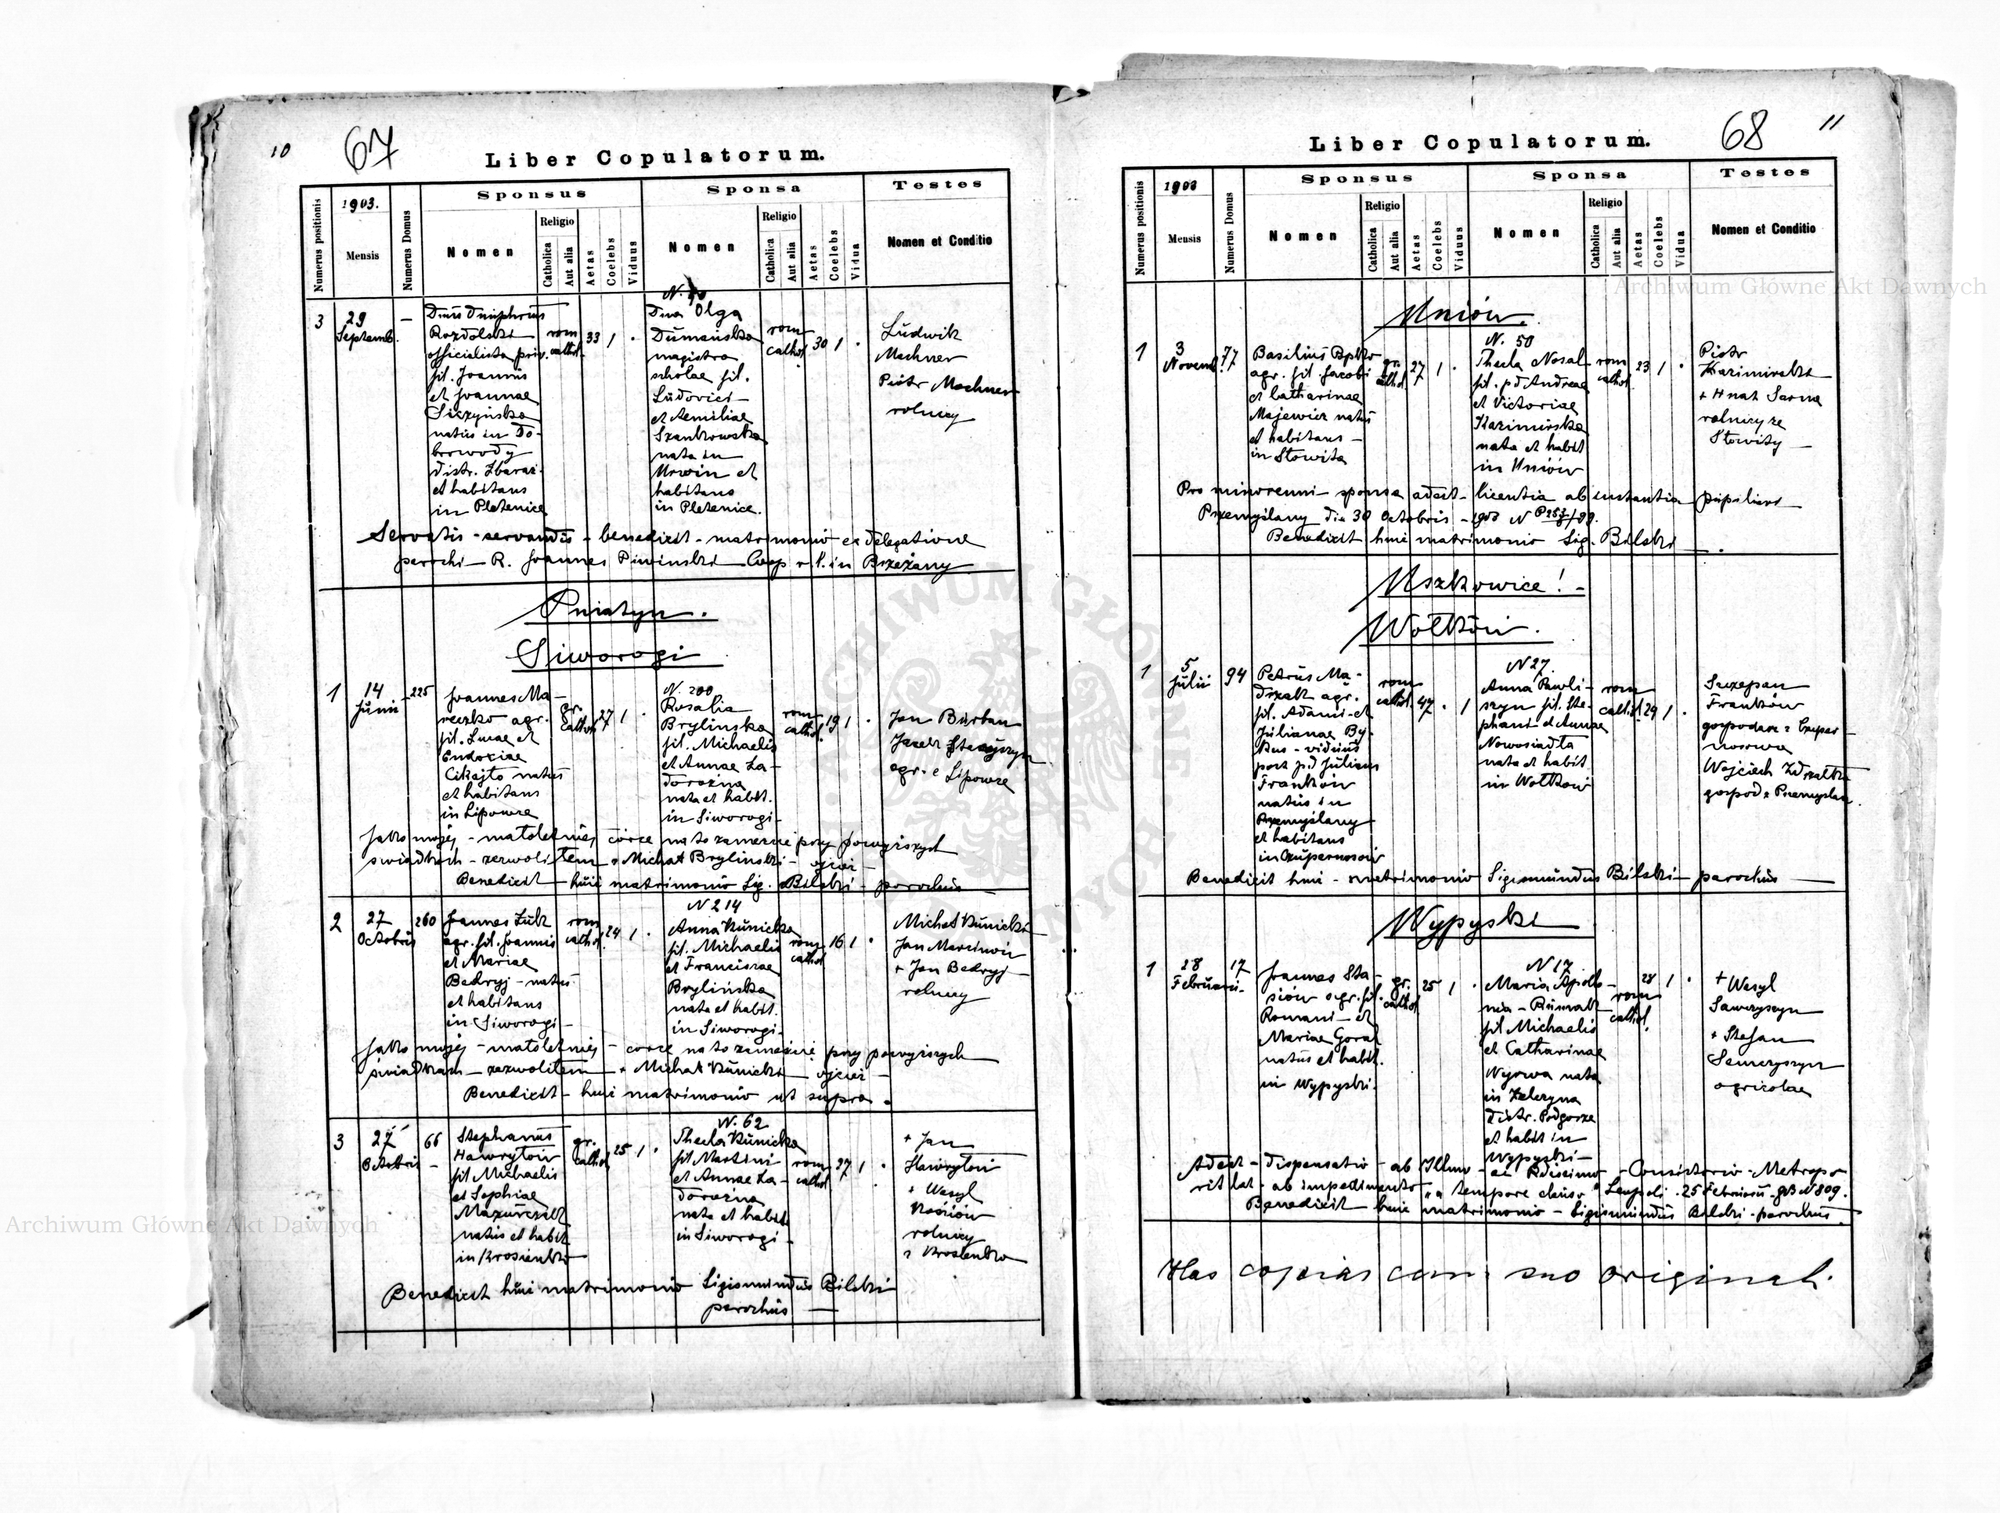 10
67
Liber Copulatorum.
Numerus positionis
1903.
Mensis
Numerus Domus
Sponsus
Nomen
Religio
Catholica
Aut alia
Aetas
Coelebs
Viduus
Sponsa
Nomen
Religio
Catholica
Aut alia
Aetas
Coelebs
Vidua
Testes
Nomen et Conditio
3
29
Septemb.
—
Rozdolski
officialista priv.
fil. Joannis
et Joannae
Siczyńska
natus in Do-
browody
distr. Zbaraż
et habitans
in Pletenice
rom
cathol.
33
1
Olga
Dumańska
magistra
scholae fil.
Ludovici
et Aemiliae
Szankowska
nata in
et
habitans
in Pletenice.
rom
cathol
30
1
Ludwik
Mechner
Piotr Mechner
rolnicy
Servatis servandis benedixit matrimonio ex delegatione
parochi R. Joannes Piwinski Coop r. l. in Brzeżany
Pniatyn.
Siworogi
1
14
Junii
225
Joannes Ma-
reczko agr.
fil. Lucae et
Eudoxiae
natus
et habitans
in Lipowce
gr.
cathol
27
1
N. 200
Rosalia
Brylinska
fil. Michaelis
et Annae Za-
dorożna
nata et habit.
in Siworogi
rom
cathol.
19
1
Jan Burban
Jacek
agr. e Lipowce
Jako mojej małoletniej córce na to zamęście przy powyższych
świadkach zezwolitem + Michał Brylinski ojciec
Benedixit huic matrimonio Sig. Bilski parochus
2
27
Octobris
260
Joannes Żuk
agr. fil. Joannis
et Mariae
Bedryj natus
et habitans
in Siworogi
rom
cathol.
24
1
N 214
Anna Kunicka
fil. Michaelis
et Franciscae
Brylińska
nata et habit.
in Siworogi
rom
cathol
16
1
Michał Kunicki
Jan Marcinów
+ Jan Bedryj
rolnicy
Jako mojej małoletniej córce na to zamęście przy powyższych
świadkach zezwolitem + Michał Kunicki ojciec
Benedixit huic matrimonio ut supra.
3
27
Octobris
66
Stephanus
Hawryłów
fil Michaelis
et Sophiae
Mazurczak
natus et habit
in Krosienko
gr.
cathol
25
1
N. 62
Thecla Kunicka
fil Martini
et Annae Za-
dorożna
nata et habit
in Siworogi
rom
cathol
27
1
+ Jan
Hawryłów
+ Wasyl
rolnicy
z Krosienko
Benedixit huic matrimonio Sigismundus Bilski
parochus
68
11
Liber Copulatorum.
Numerus positionis
1903
Mensis
Numerus Domus
Sponsus
Nomen
Religio
Catholica
Aut alia
Aetas
Coelebs
Viduus
Sponsa
Nomen
Religio
Catholica
Aut alia
Aetas
Coelebs
Vidua
Testes
Nomen et Conditio
Uniów.
1
3
Novemb.
77
Basilius
agr. fil. Jacobi
et Catharinae
Majewicz natus
et habitans
in Słowita
gr.
cathol
27
1
N. 50
Thecla Nosal
fil. p d Andreae
et Victoriae
Kazimirska
nata et habit
in Uniów
rom
cathol.
23
1
Piotr
Kazimirski
+ Hnat Sarna
rolnicy ze
Słowity
Pro minorenni sponsa adest licentia ab instantia pupilari
Przemyślany die 30 Octobris 1903 N
Benedixit huic matrimonio Sig. Bilski
Uszkowice!
Wołków.
1
5
Julii
94
Petrus Ma-
drzak agr.
fil. Adami et
Julianae By-
kus viduus
post p d Juliana
Franków
natus in
Przemyślany
et habitans
in Czupernosów
rom
cathol.
47
1
N 27.
Anna Pawli-
szyn fil. Ste-
phani et Annae
Nowosiadła
nata et habit
in Wołków
rom
cathol
29
1
Szczepan
Franków
gospodarz z Czuper-
nosowa
Wojciech
gospod z Przemyślan
Benedixit huic matrimonio Sigismundus Bilski parochus
Wypyski
1
28
Februarii
17
Joannes Sta-
siów agr. fil.
Romani et
Mariae Goral
natus et habit.
in Wypyski.
gr.
cathol
25
1
N 17.
Maria Apollo-
nia
fil Michaelis
et Catharinae
Wyrwa nata
in
distr. Podgorze
et habit in
Wypyski
28
rom
cathol.
1
+ Wasyl
Sawczyszyn
+ Stefan
Semczyszyn
agricolae
Adest dispensatio ab Illmo ac Rdissimo Consistorio Metropo-
rit lat. ab impedimento "tempore clauso" Leopoli 25 Februarii N 809.
Benedixit huic matrimonio Sigismundus Bilski parochus.
Has copias cum suo original.
Archiwum Główne Akt Dawnych
Archiwum Główne Akt Dawnych
ARCHIWUM GŁÓWNE AKT DAWNYCH